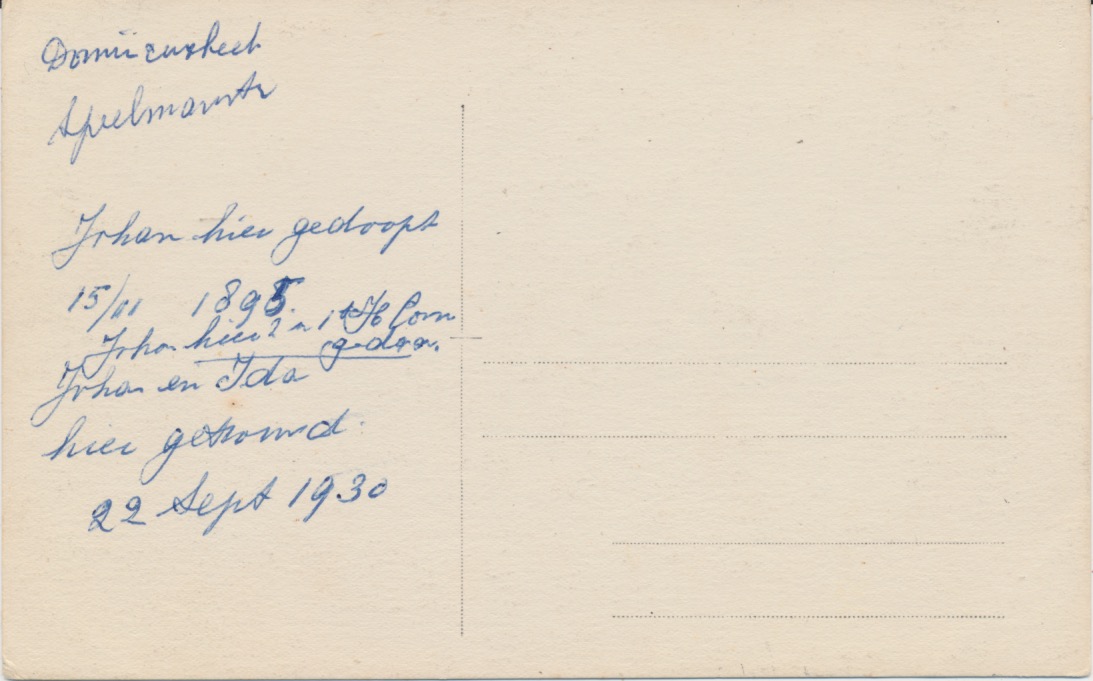 Dominicuskerk
Spuelmanstr
Johan hier gedoopt
15/11 1895.
Johan hier zn 1ste H Com
gedaan.
Johan en Ida
hier getrouwd.
22 Sept 1930